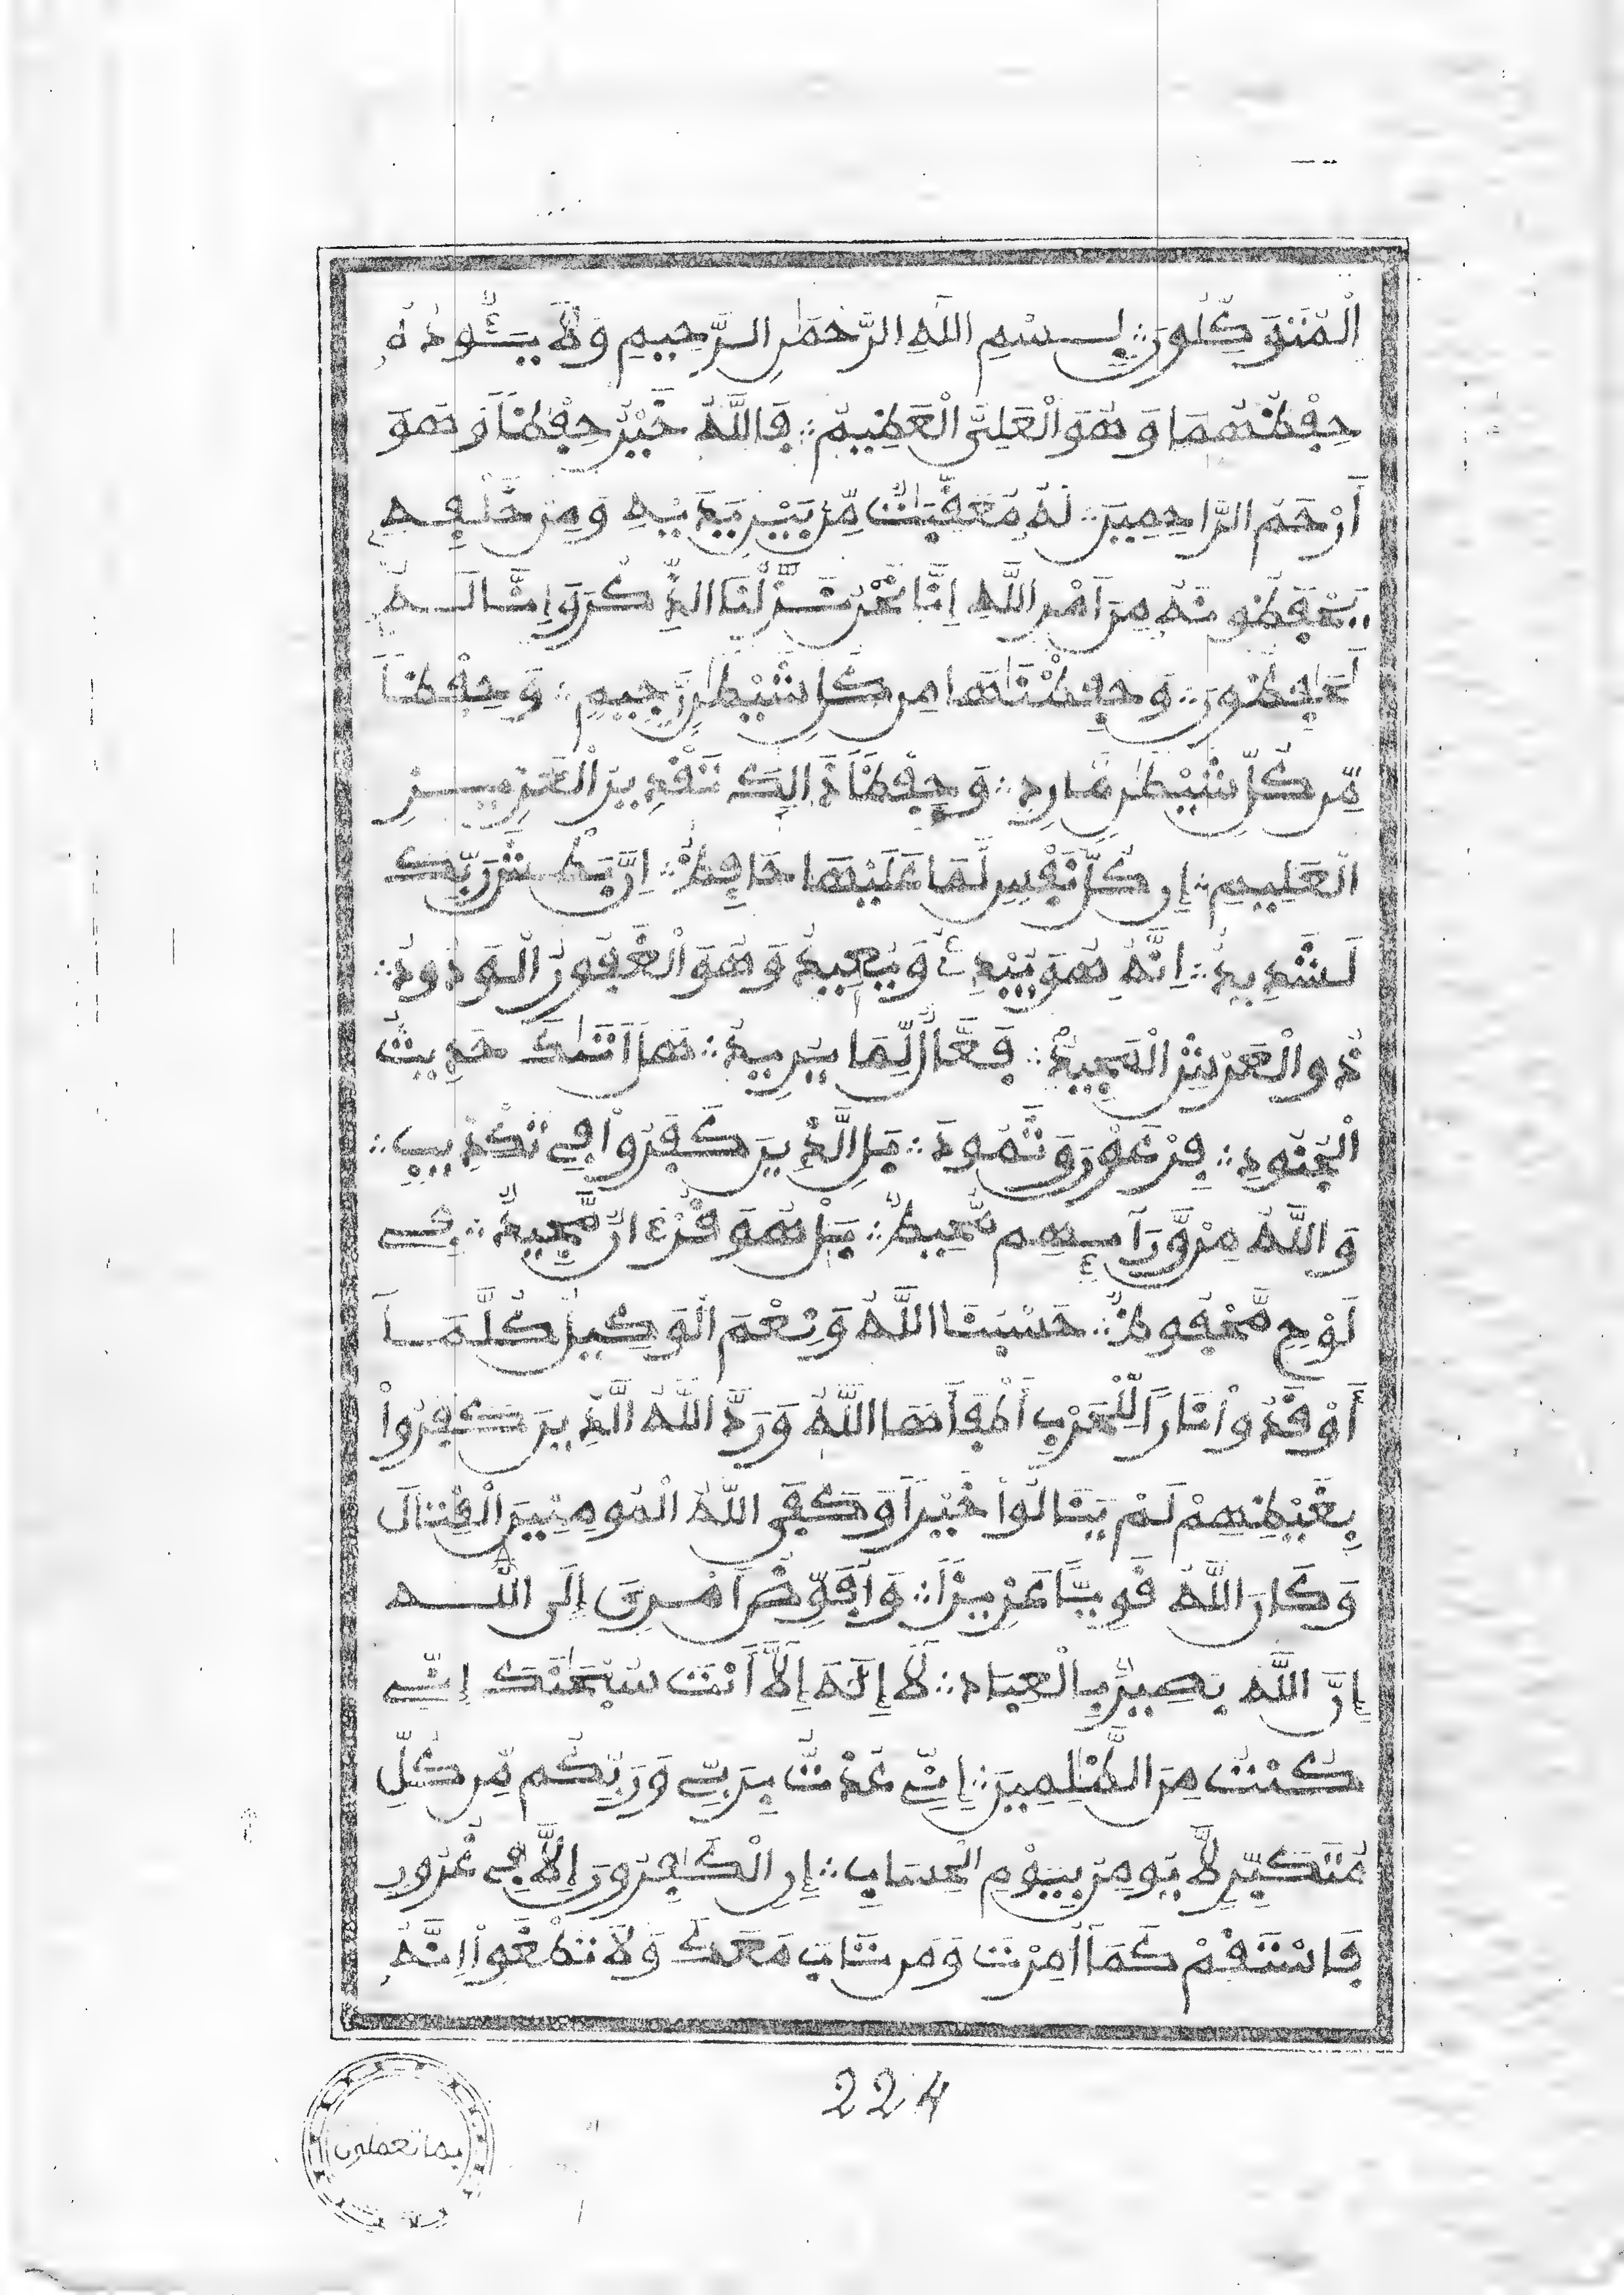 الْمُتَوَكِّلُونَ ∴ بِسْمِ اللَّهِ الرَّحْمَٰنِ الرَّحِيمِ وَلَا يَـُٔودُهُ
حِفْظُهُمَا وَهُوَ الْعَلِيُّ الْعَظِيمُ ∴ فَاللَّهُ خَيْرٌ حِفْظًا وَهُوَ
أَرْحَمُ الرَّاحِمِينَ ∴ لَهُ مُعَقِّبَاتٌ مِّنْ بَيْنِ يَدَيْهِ وَمِنْ خَلْفِهِ
يَحْفَظُونَهُ مِنَ امْرِ اللَّهِ إِنَّا نَحْنُ نَزَّلْنَا الذِّكْرَ وَإِنَّا لَهُ
لَحَٰفِظُونَ ∴ وَحَفِظْنَٰهَا مِن كُلِّ شَيْطَٰنٍ رَّجِيمٍ ∴ وَحِفْظًا
مِّن كُلِّ شَيْطَٰنٍ مَّارِدٍ ∴ وَحِفْظًا ذَالِكَ تَقْدِيرُ الْعَزِيزِ
الْعَلِيمِ ∴ إِن كُلُّ نَفْسٍ لَّمَا عَلَيْهَا حَافِظٌ ∴ إِنَّ بَطْشَ رَبِّكَ
لَشَدِيدٌ ∴ إِنَّهُ هُوَ يُبْدِئُ وَيُعِيدُ وَهُوَ الْغَفُورُ الْوَدُودُ ∴
ذُو الْعَرْشِ الْمَجِيدُ ∴ فَعَّالٌ لِّمَا يُرِيدُ ∴ هَلَ اتَىٰكَ حَدِيثُ
الْجُنُودِ ∴ فِرْعَوْنَ وَثَمُودَ ∴ بَلِ الَّذِينَ كَفَرُواْ فِي تَكْذِيبٍ ∴
وَاللَّهُ مِنْ وَّرَآئِهِم مُّحِيطٌ ∴ بَلْ هُوَ قُرْءَانٌ مَّجِيدٌ ∴ فِي
لَوْحٍ مَّحْفُوظٌ ∴ حَسْبُنَا اللَّهُ وَنِعْمَ الْوَكِيلُ كُلَّمَا
أَوْقَدُواْ نَارًا لِّلْحَرْبِ أَطْفَأَهَا اللَّهُ وَرَدَّ اللَّهُ الَّذِينَ كَفَرُواْ
بِغَيْظِهِمْ لَمْ يَنَالُواْ خَيْرًا وَكَفَى اللَّهُ الْمُومِنِينَ الْقِتَالَ
وَكَانَ اللَّهُ قَوِيًّا عَزِيزًا ∴ وَأُفَوِّضُ أَمْرِيَ إِلَى اللَّهِ
إِنَّ اللَّهَ بَصِيرٌ بِالْعِبَادِ ∴ لَا إِلَهَ إِلَّا أَنْتَ سُبْحَٰنَكَ إِنِّي
كُنْتُ مِنَ الظَّٰلِمِينَ ∴ إِنِّي عُذْتُ بِرَبِّي وَرَبِّكُم مِّن كُلِّ
مُتَكَبِّرٍ لَّا يُومِنُ بِيَوْمِ الْحِسَابِ ∴ إِنِ الْكَٰفِرُونَ إِلَّا فِي غُرُورٍ
فَاسْتَقِمْ كَمَا أُمِرْتَ وَمَن تَابَ مَعَكَ وَلَا تَطْغَوْا إِنَّهُ
بما تعملون
224